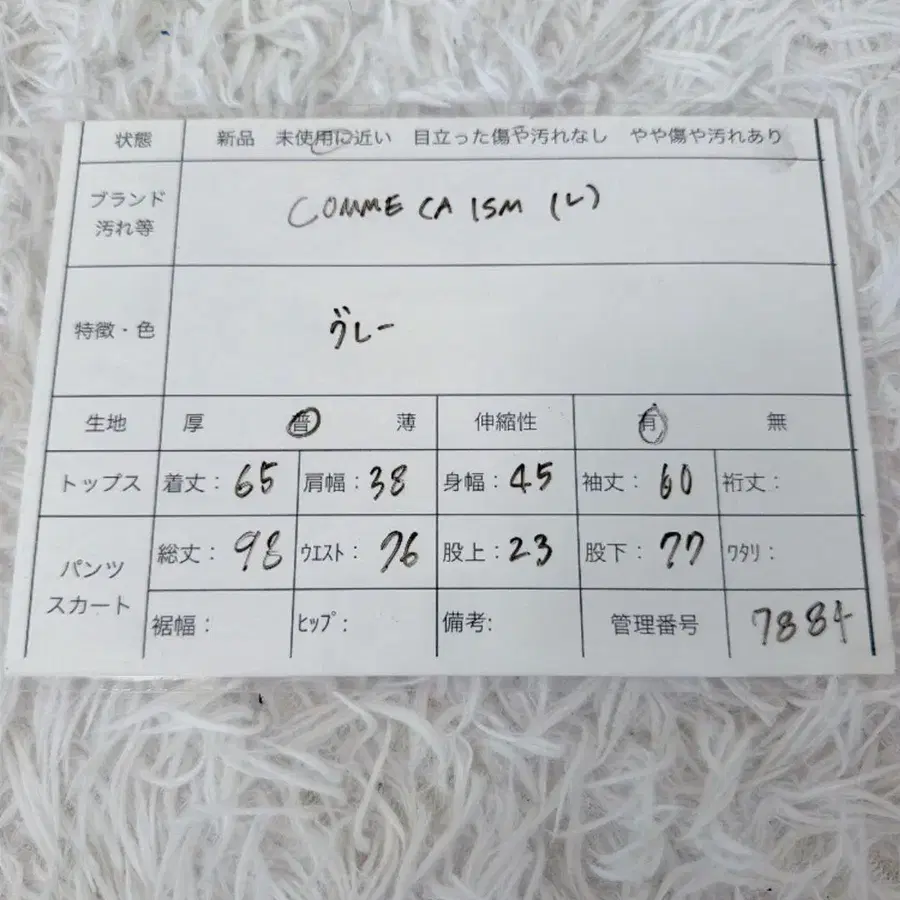 状態 新品 未使用に近い 目立った傷や汚れなし やや傷や汚れあり
ブランド 汚れ等 COMME CA ISM (L)
特徴・色 グレー
生地 厚 普 薄 伸縮性 有 無
トップス 着丈: 65 肩幅: 38 身幅: 45 袖丈: 60 裄丈:
パンツ スカート 総丈: 98 ウエスト: 76 股上: 23 股下: 77 ワタリ:
裾幅: ヒップ: 備考: 管理番号 7884